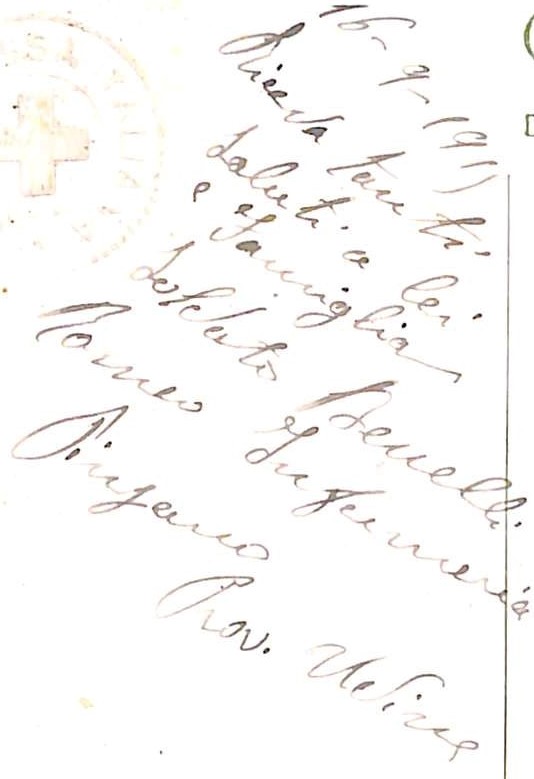 16-9-1911
Riceva tanti
saluti a lei
e famiglia
Soldato Benelli
Romeo Infermeria
Pinzano
Prov. Udine